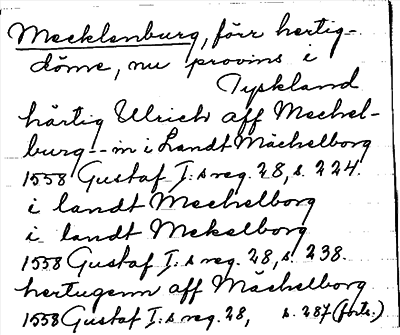 Mecklenburg, förr hertig-
döme, nu provins i
Tyskland
hårtig Ulrich aff Mechel-
burg -- in i Landt Mächelborg
1558 Gustaf I:s reg. 28, s. 224.
i landt Mechelborg
i landt Mekelborg
1558 Gustaf I:s reg. 28, s. 238.
hertugenn aff Mächelborg
1558 Gustaf I:s reg. 28, s. 287 (forts.)